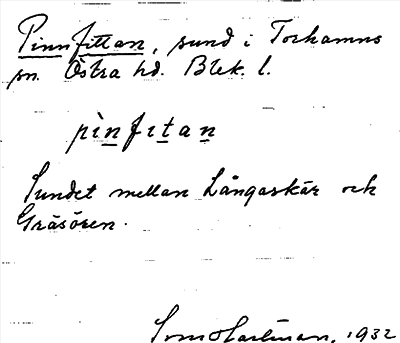 Pinnfittan, sund i Torhamns
sn. Östra hd. Blek. l.
pìnfıtan
Sundet mellan Långaskär och
Gräsören.
1932